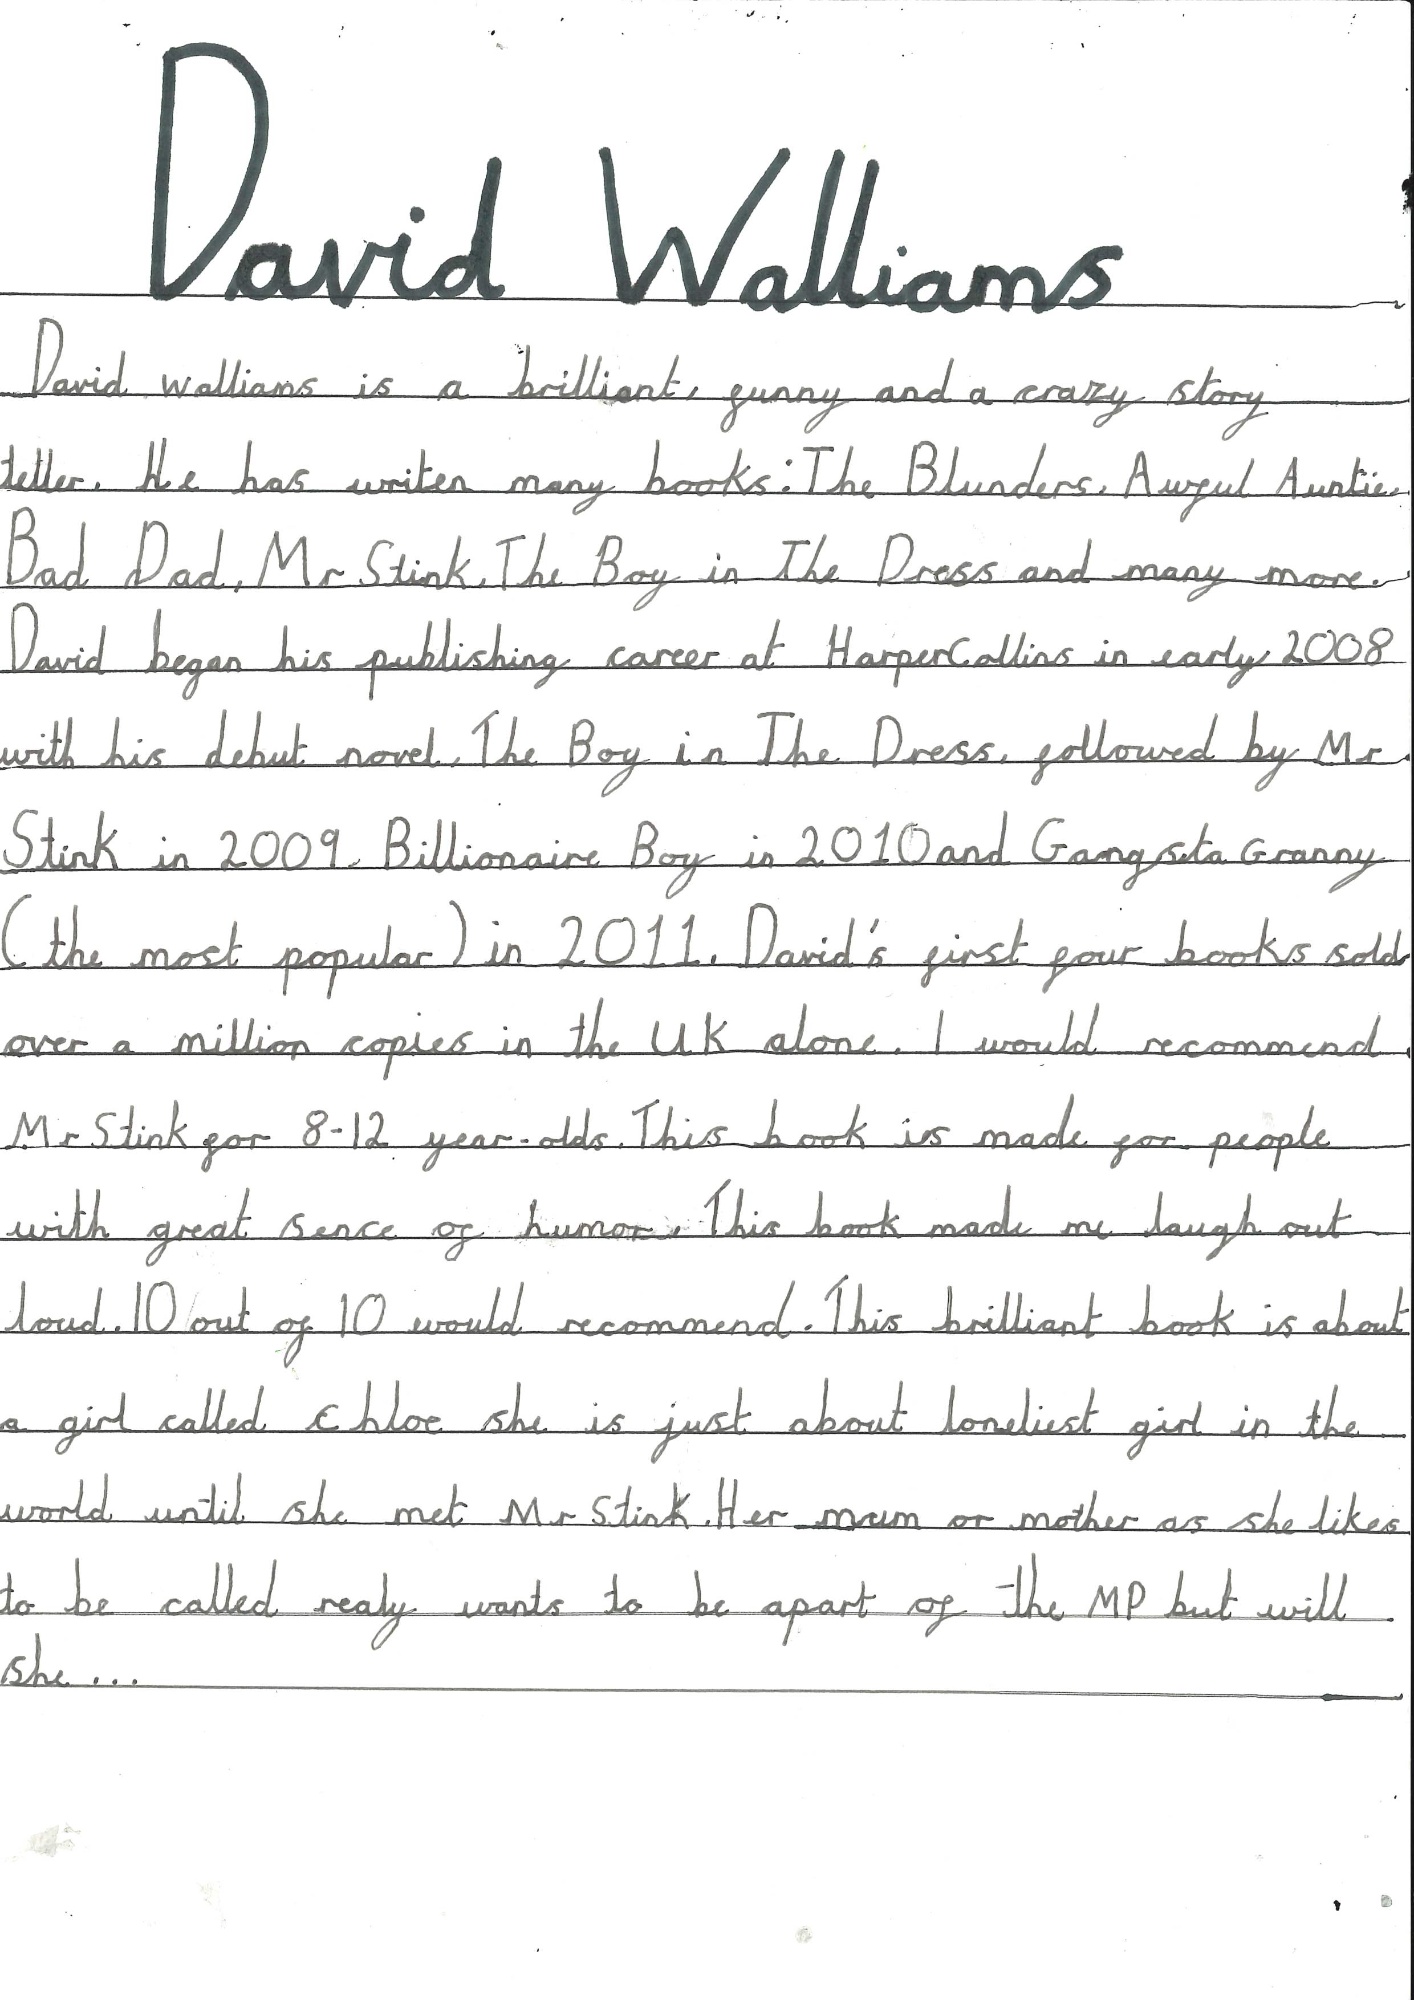 David Walliams
David walliams is a brilliant, funny and a crazy story
teller. He has writen many books: The Blunders, Awful Auntie,
Bad Dad, Mr Stink, The Boy in The Dress and many more.
David began his publishing career at HarperCollins in early 2008
with his debut novel, The Boy in The Dress, followed by Mr
Stink in 2009, Billionaire Boy in 2010 and Gangsta Granny
(the most popular) in 2011. David's first four books sold
over a million copies in the UK alone. I would recommend
Mr Stink for 8-12 year-olds. This book is made for people
with great sence of humor. This book made me laugh out
loud. 10 out of 10 would recommend. This brilliant book is about
a girl called Chloe she is just about loneliest girl in the
world until she met Mr Stink. Her mum or mother as she likes
to be called realy wants to be apart of the MP but will
she...